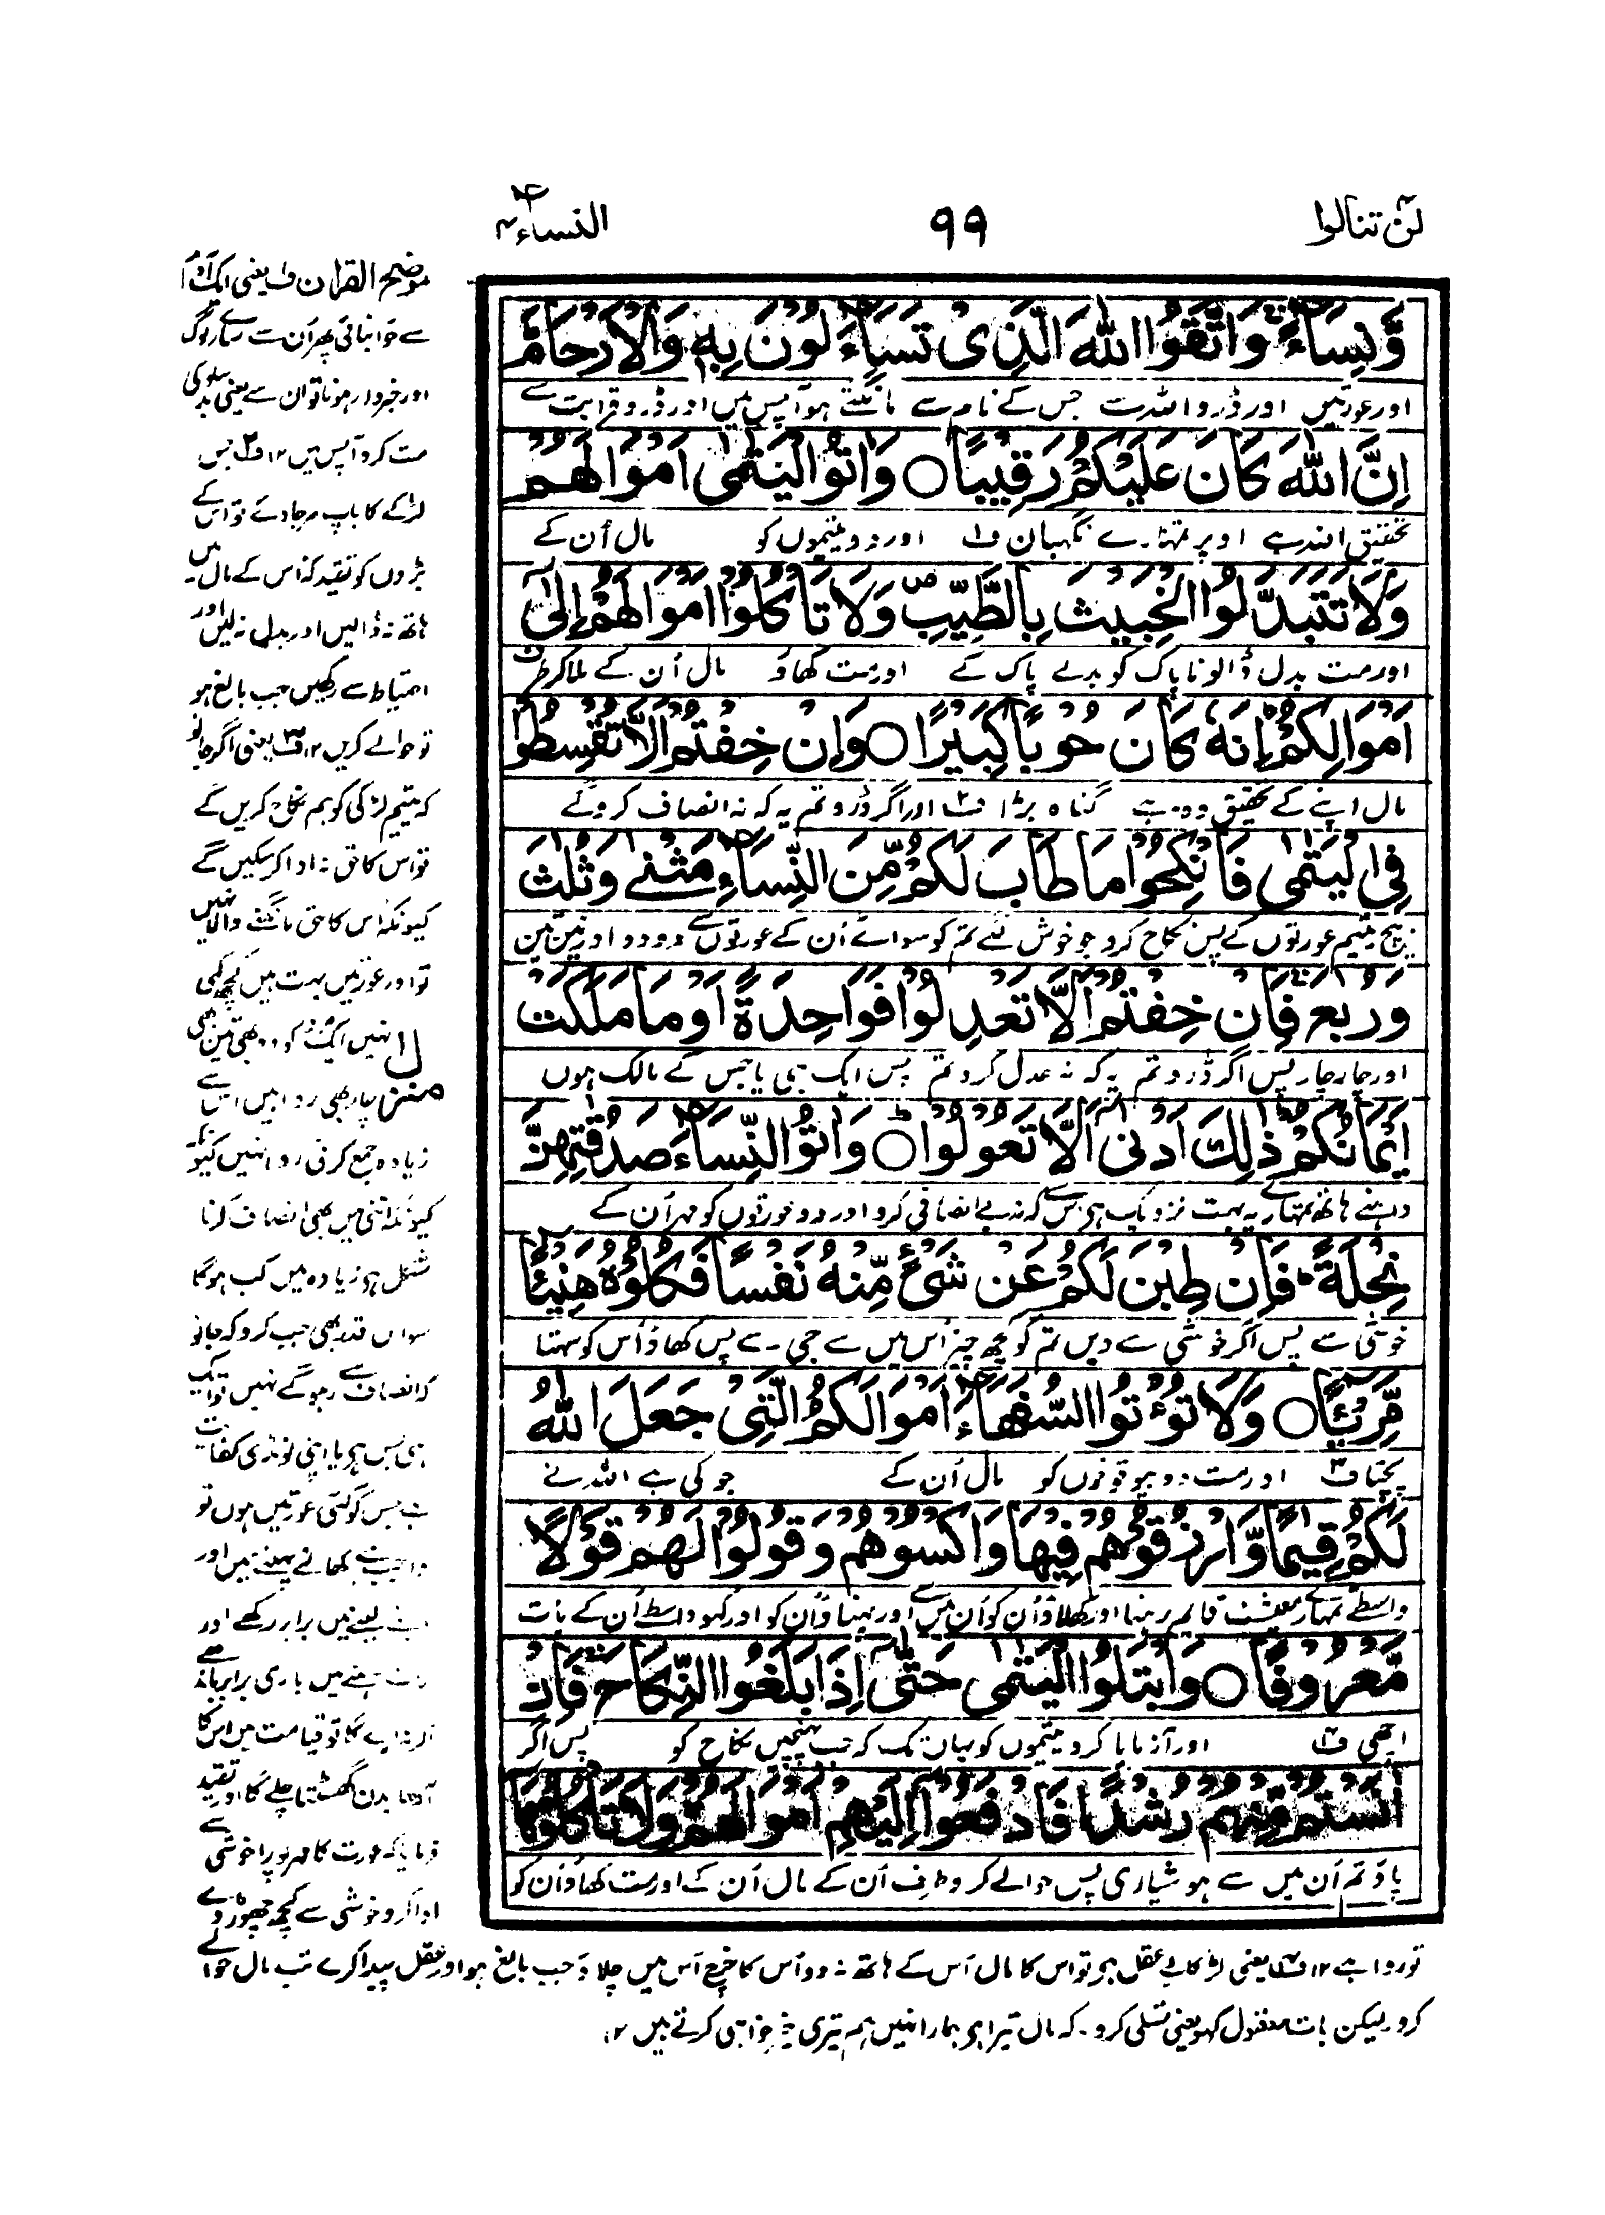 لن تنالوا
٩٩
النساء ٤
وَّنِسَآءً ۚ وَاتَّقُوا اللّٰهَ الَّذِیْ تَسَآءَلُوْنَ بِهٖ وَالْاَرْحَامَ ؕ
اور عورتیں اور ڈرو اللہ سے جس کے نام سے مانگتے ہو آپس میں اور ڈرو قرابت سے
اِنَّ اللّٰهَ كَانَ عَلَیْكُمْ رَقِیْبًا ○ وَاٰتُوا الْیَتٰمٰۤی اَمْوَالَهُمْ
تحقیق اللہ ہے اوپر تمہارے نگہبان ف۱ اور دو یتیموں کو مال اُن کے
وَلَا تَتَبَدَّلُوا الْخَبِیْثَ بِالطَّیِّبِ ۪ وَلَا تَاْكُلُوْۤا اَمْوَالَهُمْ اِلٰۤی
اور مت بدل ڈالو ناپاک کو بدلے پاک کے اور مت کھاؤ مال اُن کے ملا کر طرف
اَمْوَالِكُمْ ؕ اِنَّهٗ كَانَ حُوْبًا كَبِیْرًا ○ وَاِنْ خِفْتُمْ اَلَّا تُقْسِطُوْا
مال اپنے کے تحقیق وہ ہے گناہ بڑا ف۲ اور اگر ڈرو تم یہ کہ نہ انصاف کروگے
فِی الْیَتٰمٰی فَانْكِحُوْا مَا طَابَ لَكُمْ مِّنَ النِّسَآءِ مَثْنٰی وَثُلٰثَ
بیچ یتیم عورتوں کے پس نکاح کرو جو خوش لگے تم کو سوائے اُن کے عورتوں سے دو دو اور تین تین
وَرُبٰعَ ۚ فَاِنْ خِفْتُمْ اَلَّا تَعْدِلُوْا فَوَاحِدَةً اَوْ مَا مَلَكَتْ
اور چار چار پس اگر ڈرو تم یہ کہ نہ عدل کرو تم پس ایک ہی یا جس کے مالک ہوں
اَیْمَانُكُمْ ؕ ذٰلِكَ اَدْنٰۤی اَلَّا تَعُوْلُوْا ○ؕ وَاٰتُوا النِّسَآءَ صَدُقٰتِهِنَّ
داہنے ہاتھ تمہارے یہ بہت نزدیک ہی اس سے کہ نہ بے انصافی کرو اور دو عورتوں کو مہر اُن کے
نِحْلَةً ؕ فَاِنْ طِبْنَ لَكُمْ عَنْ شَیْءٍ مِّنْهُ نَفْسًا فَكُلُوْهُ هَنِیْٓـًٔا
خوشی سے پس اگر خوشی سے دیں تم کو کچھ چیز اُس میں سے جی سے پس کھاؤ اُس کو سہتا
مَّرِیْٓـًٔا ○ وَلَا تُؤْتُوا السُّفَهَآءَ اَمْوَالَكُمُ الَّتِیْ جَعَلَ اللّٰهُ
پچتا ف۳ اور مت دو بیوقوفوں کو مال اُن کے جو کی ہے اللہ نے
لَكُمْ قِیٰمًا وَّارْزُقُوْهُمْ فِیْهَا وَاكْسُوْهُمْ وَقُوْلُوْا لَهُمْ قَوْلًا
واسطے تمہارے معیشت قایم رہنا اور کھلاؤ اُن کو اُن میں سے اور پہناؤ اُن کو اور کہو واسطے اُن کے بات
مَّعْرُوْفًا ○ وَابْتَلُوا الْیَتٰمٰی حَتّٰۤی اِذَا بَلَغُوا النِّكَاحَ ۚ فَاِنْ
اچھی ف۴ اور آزمایا کرو یتیموں کو یہاں تک کہ جب پہنچیں نکاح کو پس اگر
اٰنَسْتُمْ مِّنْهُمْ رُشْدًا فَادْفَعُوْۤا اِلَیْهِمْ اَمْوَالَهُمْ ۚ وَلَا تَاْكُلُوْهَاۤ
پاؤ تم اُن میں سے ہوشیاری پس حوالے کرو طرف اُن کے مال اُن کے اور مت کھاؤ اُن کو
موضح القرآن ف۱ یعنی ایک آدم
سے حوا بنائی پھر اُن سے سارے لوگ
اور خبردار ہو ناتوان سے یعنی بدسلوکی
مت کرو آپس میں ۱۲ ف۲ جس
لڑکے کا باپ مرجاوے تو اُس کے
بڑوں کو تقید کہ اس کے مال میں
ہاتھ نہ ڈالیں اور بدل نہ لیں اور
احتیاط سے رکھیں جب بالغ ہو
تو حوالے کریں ۱۲ ف۳ یعنی اگر جانو
کہ یتیم لڑکی کو ہم نکاح کریں گے
تو اس کا حق نہ ادا کر سکیں گے
کیونکہ اس کا حق مانگنے والا نہیں
تو اور عورتیں بہت ہیں کچھ کمی
نہیں ایک کو دو بھی تین بھی
منزل چار بھی روا ہیں اس سے
زیادہ جمع کرنی روا نہیں
کیونکہ اتنی میں بھی انصاف کرنا
مشکل ہی زیادہ میں کب ہوگا
سو اس قدر بھی جب کرو کہ جانو
کہ انصاف سے رہوگے نہیں تو ایک
ہی بس ہی یا اپنی لونڈی کفایت
ہے جس کو کئی عورتیں ہوں تو
واجب ہے کھانے پہننے میں اور
لینے میں برابر رکھے اور
رات رہنے میں باری برابر باندھے
اگر نہ ایسے کرے گا تو قیامت میں اس کا
آدھا بدن گھسٹتا چلے گا اور تقید
فرمایا کہ عورت کا مہر پورا خوشی سے
ادا کرو خوشی سے کچھ چھوڑ دے
تو روا ہے ۱۲ ف۴ یعنی لڑکا بے عقل ہو تو اس کا مال اُس کے ہاتھ نہ دو اُس کا خرچ اُس میں چلاؤ جب بالغ ہو اور عقل پیدا کرے تب مال حوالے
کرو لیکن بات معقول کہو یعنی تسلی کرو۔ کہ مال تیرا ہی ہمارا نہیں ہم تیری خیرخواہی کرتے ہیں ۱۲